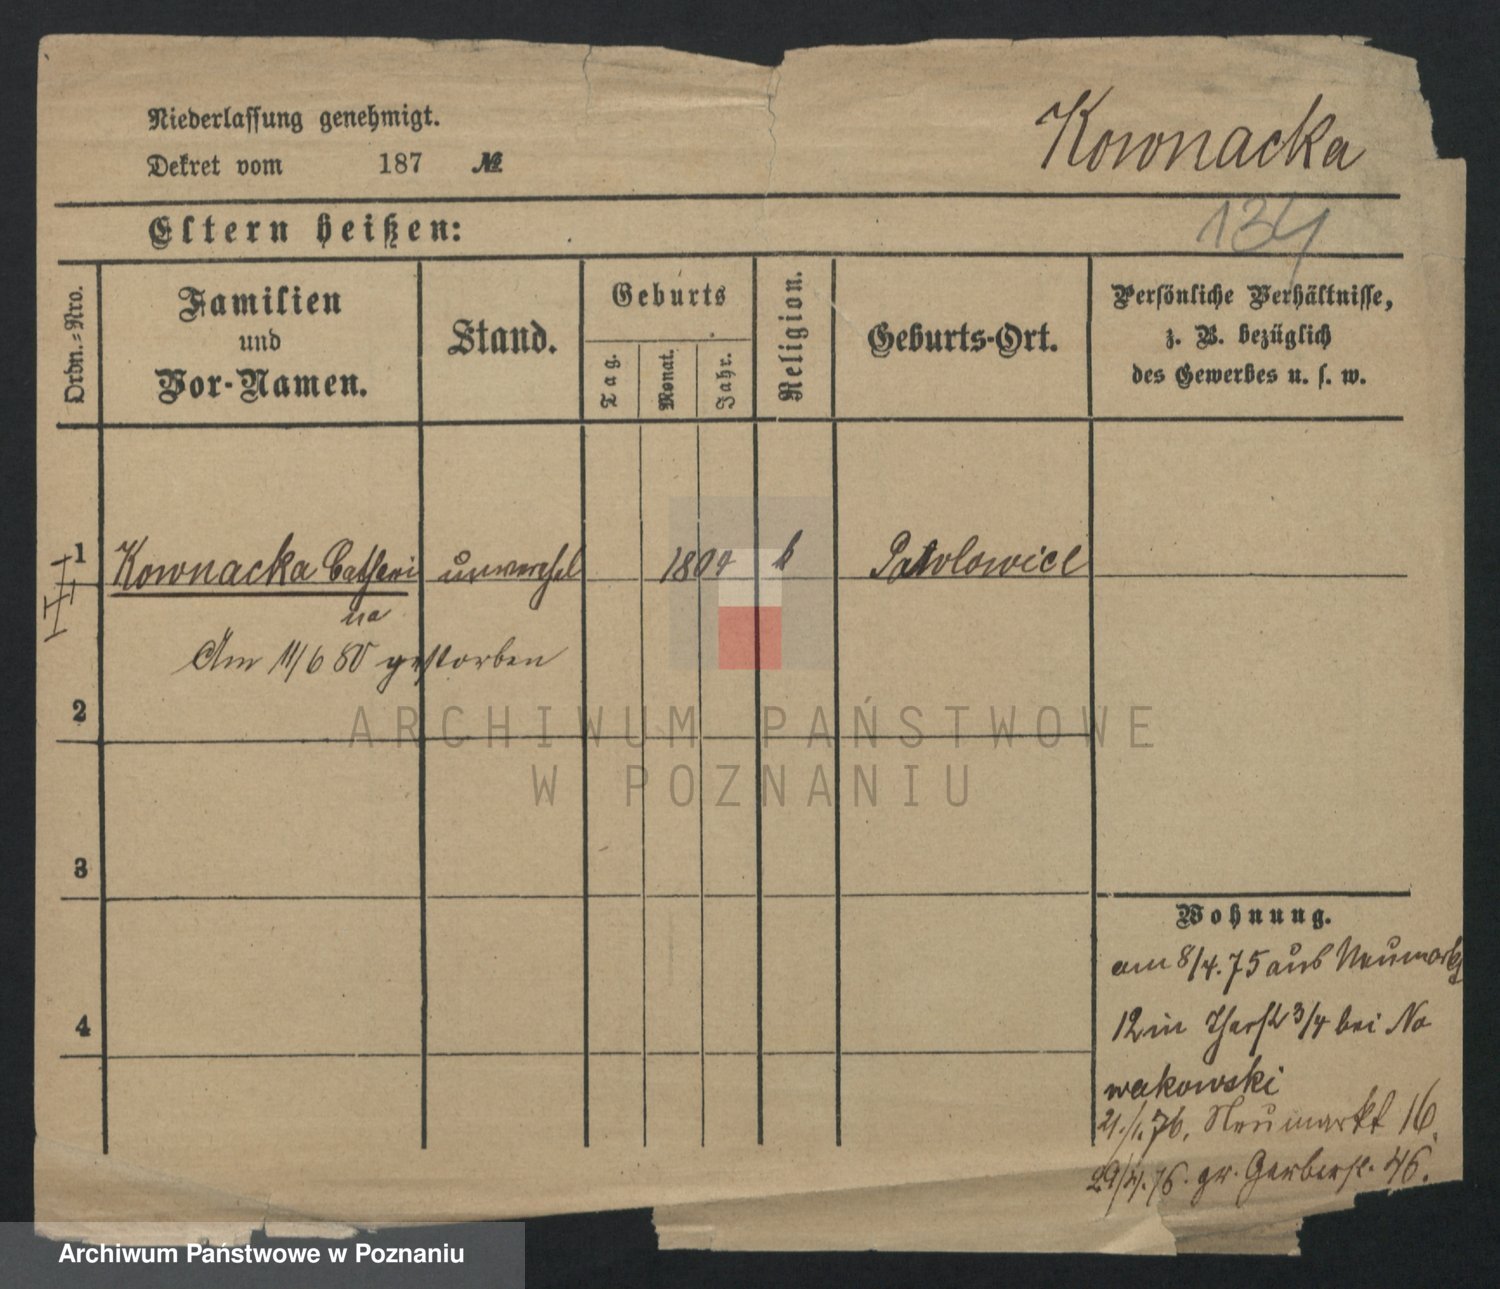 Niederlassung genehmigt.
Dekret vom 187 №
Kownacka
134
Eltern heißen:
Ordn.-Nro.
Familien
und
Vor-Namen.
Stand.
Geburts
Tag.
Monat.
Jahr.
Religion.
Geburts-Ort.
Persönliche Verhältnisse,
z. B. bezüglich
des Gewerbes u. s. w.
1
Kownacka Catheri
na
unverehel
k
Pawlowice
Am 11/6 80 gestorben
2
3
4
Wohnung.
am 8/4.75 aus Neumarkt
12 in 3/4 bei No
wakowski
21./1.76. Neumarkt 16.
29/4.76. gr. Gerberst. 46.
ARCHIWUM PAŃSTWOWE
W POZNANIU
Archiwum Państwowe w Poznaniu